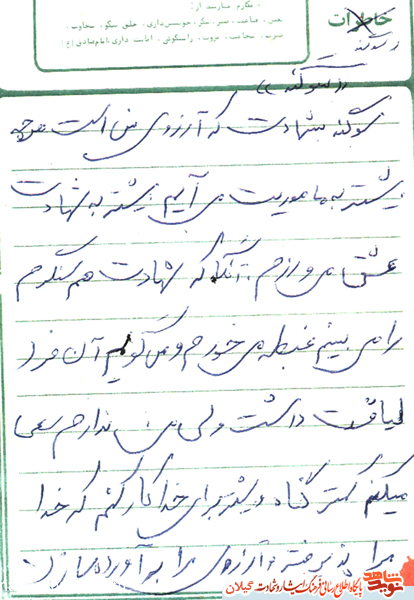 مکارم ده‌گانه از:
یقین، قناعت، صبر، شکر، خویشتن‌داری، خلق نیکو، سخاوت،
غیرت، شجاعت، مروت، راستگوئی، امانت داری، امام صادق (ع)
خاطرات
((سوگند))
سوگند بشهادت که آرزوی من است هرچه
بیشتر به ماموریت می آیم بیشتر به شهادت
عشق می ورزم. آنگاه که شهادت هم سنگرم
را می بینم غبطه می خورم و می گویم آن فرد
لیاقت داشت ولی من ندارم سعی
میکنم کمتر گناه و بیشتر برای خدا کار کنم که خدا
مرا پذیرفته و آرزوی مرا برآورده سازد.
نوید شاهد
پایگاه اطلاع رسانی فرهنگ ایثار و شهادت گیلان